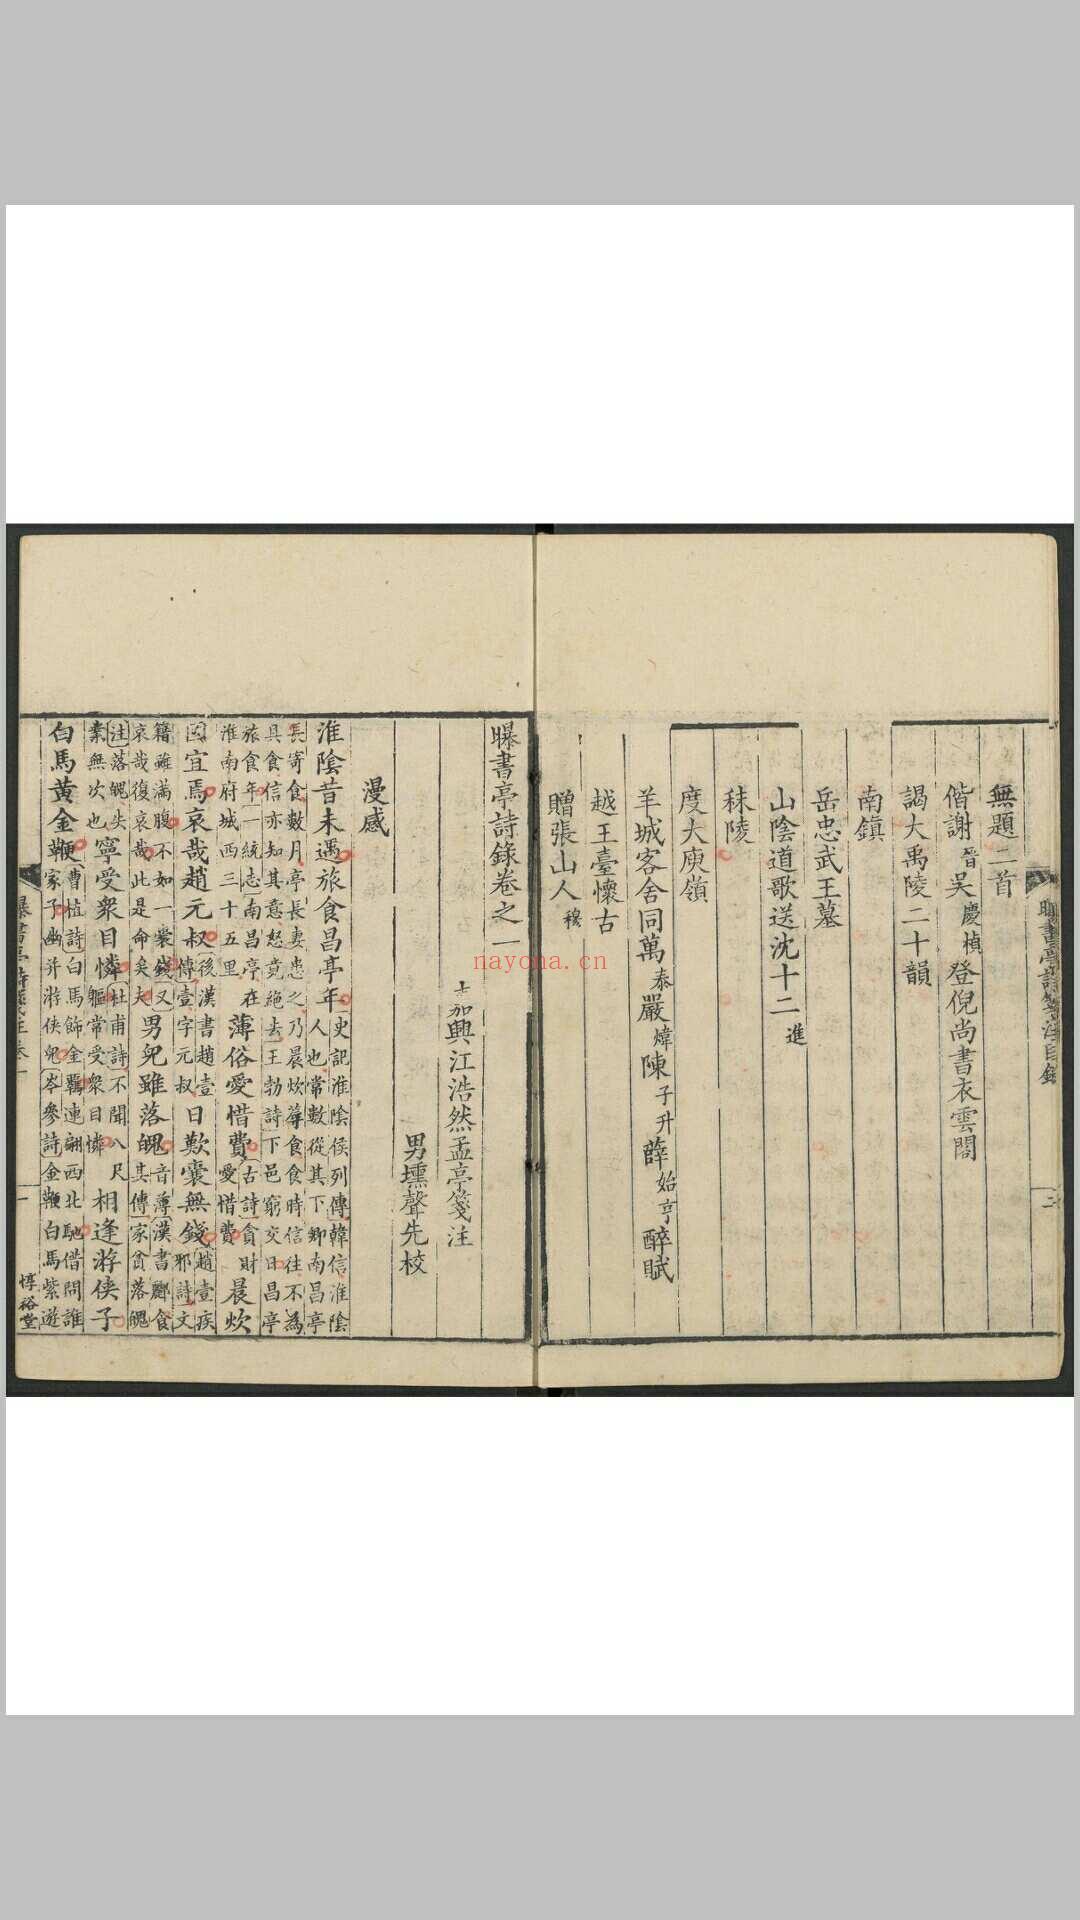 曝書亭詩箋注目錄
二
無題二首
偕謝晉吳慶楨登倪尚書衣雲閣
謁大禹陵二十韻
南鎮
岳忠武王墓
山陰道歌送沈十二進
秣陵
度大庾嶺
羊城客舍同萬泰嚴煒陳子升薛始亨醉賦
越王臺懷古
贈張山人穆
曝書亭詩錄卷之一
嘉興江浩然孟亭箋注
男壎聲先校
漫感
淮陰昔未遇旅食昌亭年史記淮陰侯列傳韓信淮陰
人也常數從其下鄉南昌亭
長寄食數月亭長妻患之乃晨炊蓐食食時信往不為
具食信亦知其意怒竟絕去王勃詩下邑窮交日昌亭
旅食年一統志南昌亭在
淮南府城西三十五里薄俗愛惜費古詩貪財
愛惜費晨炊
固宜焉哀哉趙元叔後漢書趙壹
傳壹字元叔日歎囊無錢趙壹疾
邪詩文
籍雖滿腹不如一囊錢又
哀哉復哀哉此是命矣夫男兒雖落魄音薄漢書酈食
其傳家貧落魄
注落魄失
業無次也寧受衆目憐杜甫詩不聞八尺
軀常受衆目憐相逢游俠子
白馬黃金鞭曹植詩白馬飾金羈連翩西北馳借問誰
家子幽并游俠兒岑參詩金鞭白馬紫遊
一
惇裕堂
nayona.cn